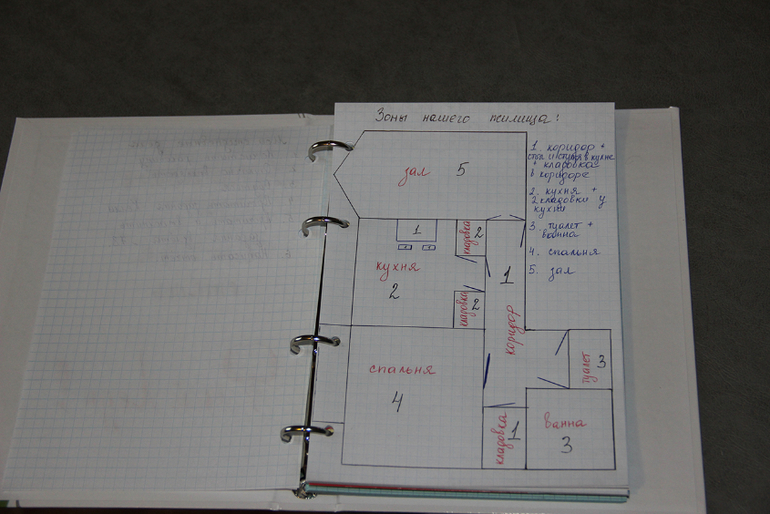 Зоны нашего жилища:
1. коридор +
стол и стулья в кухне
+ кладовказ
в коридоре
2. кухня +
2 кладовки у
кухни
3. туалет +
ванна
4. спальня
5. зал
зал 5
1
кладовка 2
кухня
2
кладовка 2
1
коридор
спальня
4
туалет 3
кладовка 1
ванна
3